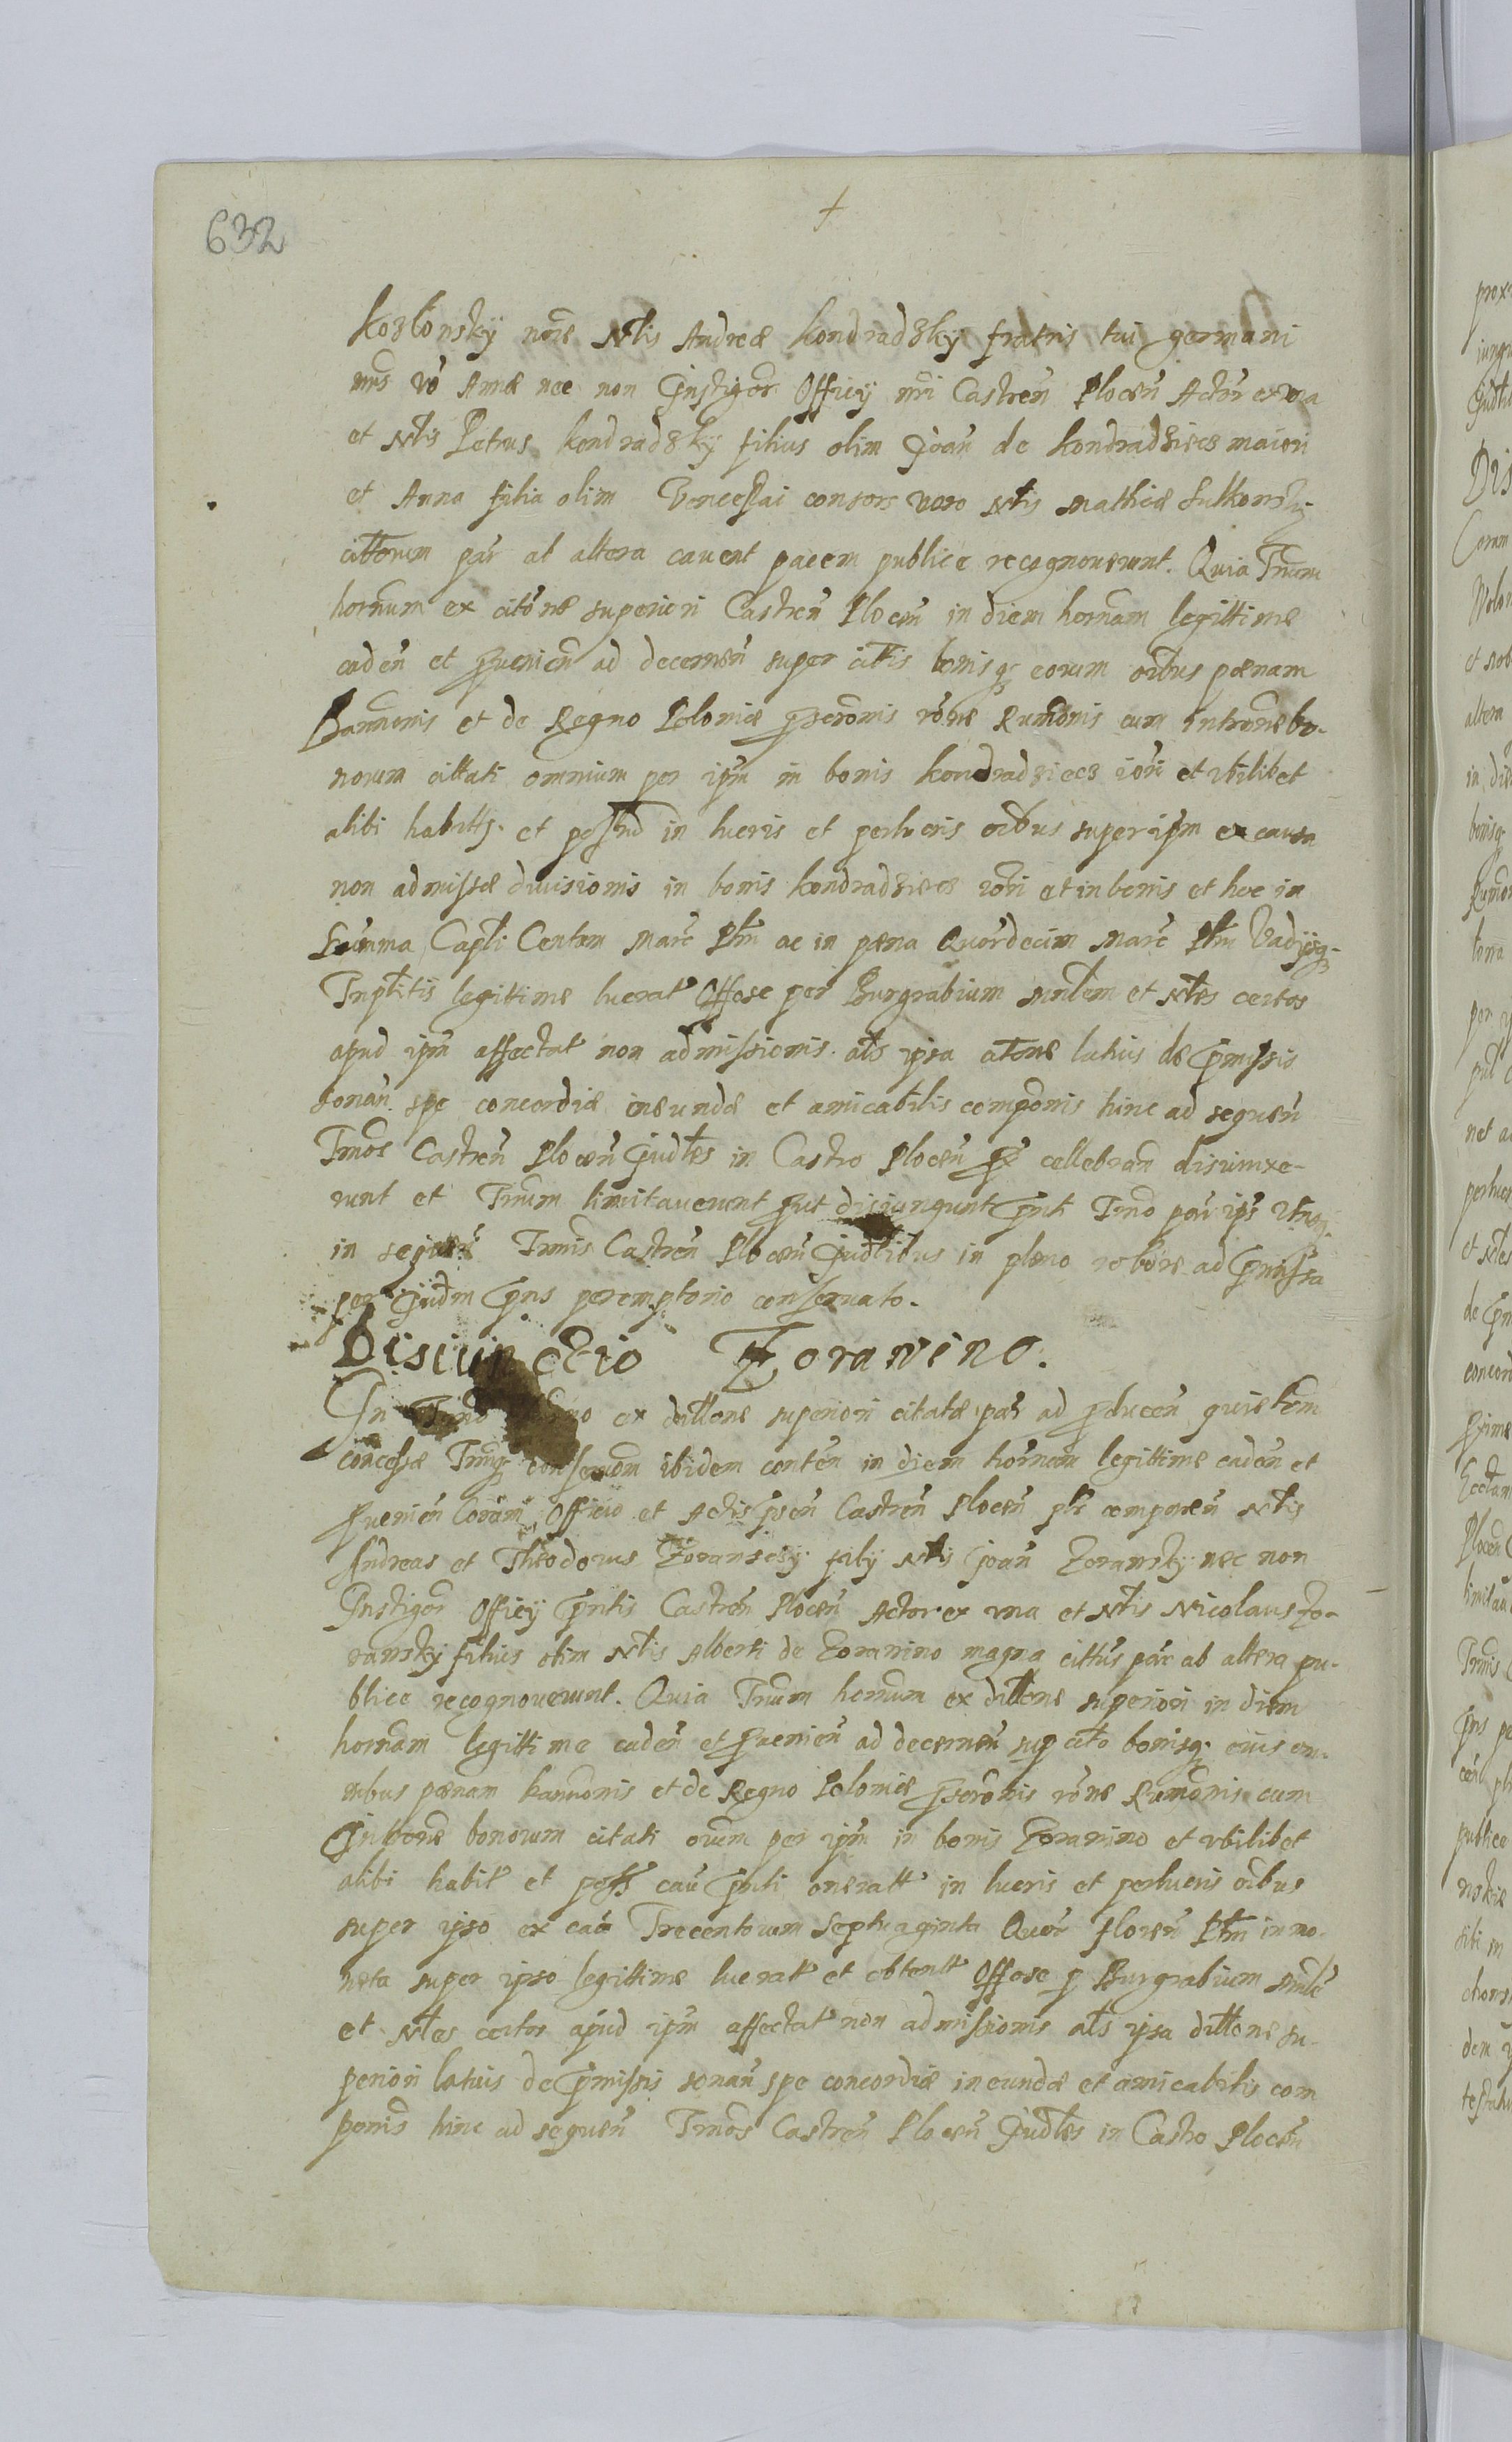 632
Kozłonsky nore Nłis Andreæ Kondradzky fratris tui germani
mrs vo Annæ nec non Instigor Officij nri Castren Plocen Actor ex una
et Nłis Petrus Kondradzky filius olim Joan de Kondradziecz maiori
et Anna filia olim Venceslai consors vero Nłis Mathiæ Sulkonsky
cittorum par ab altera cauent pacem publice recognouerunt. Quia Trnum
hornum ex citone superiori Castren Plocen in diem hornam legittime
caden et prouenien ad decernen super citis bonisq eorum oibus pænam
Bannonis et de Regno Poloniæ proscronis rone Rumonis cum intromne bo-
norum cittati omnium per ipm in bonis Kondradziecz iori et vbilibet
alibi habitts. et possnd in lucris et perlucris oibus super ipm ex causa
non admissæ diuisionis in bonis Kondradziecz iori et in bonis et hoc in
Summa Capłi Centum Marc Płm ac in pæna Quordecim Marc Płm Vadijsq
Triplitis legittime lucrat Offose per Burgrabium surrłem et Nłes certos
apud ipm affectat non admissionis. ałs ipsa citone latius de præmissis
sonan spe concordiæ ineundæ et amicabilis componis hinc ad sequen
Trnos Castren Plocen Judłes in Castro Plocen pr cellebran disiunxe-
runt et Trnum limitauerunt prout disiungunt prnti Trno par ips vtrq
in sequen Trnis Castren Plocen Judłibus in pleno robore ad præmissa
per Judm prns peremptorio conseruato.
Disiunctio Zoranino.
In Trno horno ex dilłone superiori citatæ par ad producen quietem
concessæ Trnūq conseruom ibidem conten in diem hornam legittime caden et
prouenien Coram Officio et Actis prsen Castren Plocen plr comparen Nłis
Andreas et Theodorus Zoranscsy filij Nłis Joan Zoransky nec non
Instigor Officij prntis Castren Plocen Actor ex una et Nłis Nicolaus Zo-
ransky filius olim Nłis Alberti de Zoranino magna cittus par ab altera pu-
blice recognouerunt. Quia Trnum hornum ex dilłone superiori in diem
hornam legittime caden et prouenien ad decernen sup cito bonisq. eius om-
nibus pænam bannonis et de Regno Poloniæ proscronis rone Rumonis cum
Introne bonorum citati oium per ipm in bonis Zoranino et vbilibet
alibi habit et poss cau prnti oneratt in lucris et perlucris oibus
super ipso ex cau Trecentorum Septuaginta Quor floren Płm in mo-
neta super ipso legittime lucrat et obtentt Offose p Burgrabium surrłe
et Nłes certos apud ipm affectat non admissionis ałs ipsa dilłone su-
periori latius de præmissis sonan spe concordiæ ineundæ et amicabilis com
ponis hinc ad sequen Trnos Castren Plocen Judłes in Castro Plocen